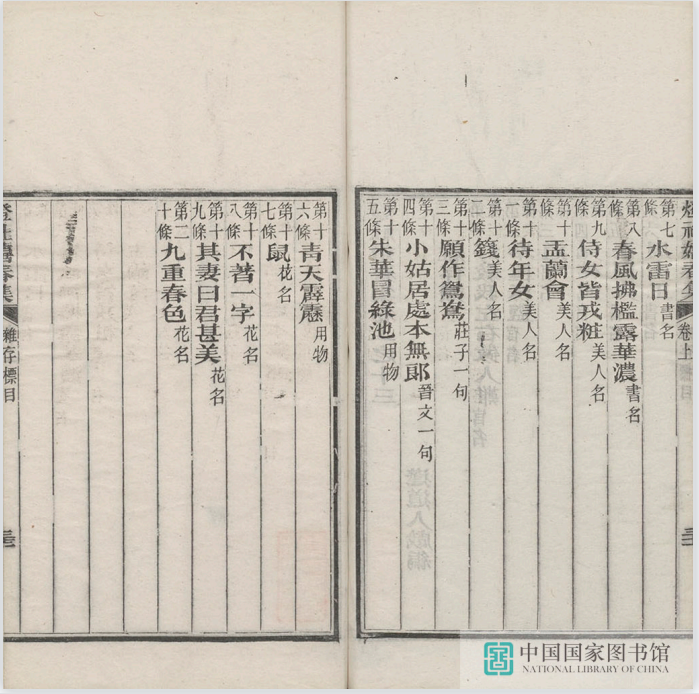 燈社嬉春集 卷上 標目
第七條 水雷日 書名
第八條 春風拂檻露華濃 書名
第九條 侍女皆戎粧 美人名
第十條 盂蘭會 美人名
第十一條 待年女 美人名
第十二條 籛 美人名
第十三條 願作鴛鴦 莊子一句
第十四條 小姑居處本無郎 晉文一句
第十五條 朱華冒綠池 用物
第十六條 青天霹靂 用物
第十七條 鼠 花名
第十八條 不著一字 花名
第十九條 其妻曰君甚美 花名
第二十條 九重春色 花名
燈社嬉春集 雜存標目
中国国家图书馆
NATIONAL LIBRARY OF CHINA